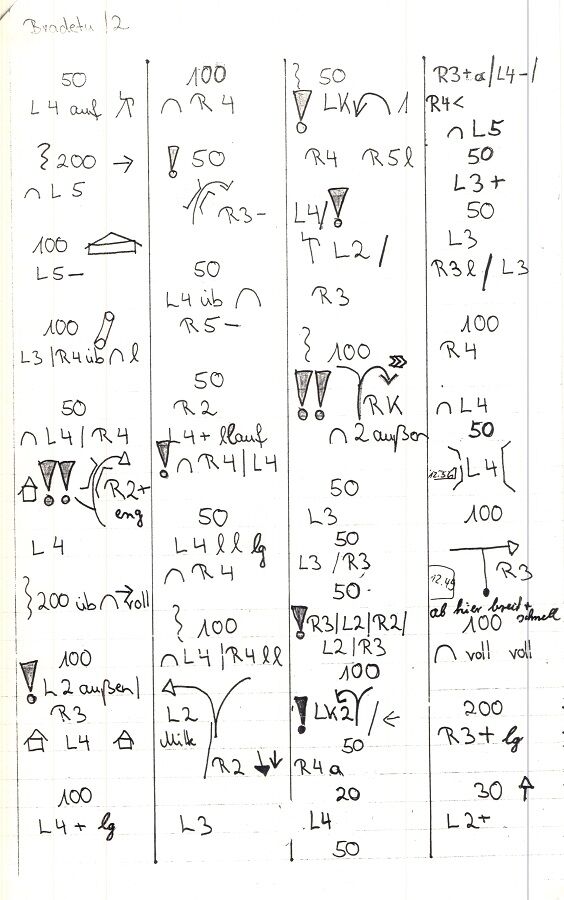 Bradetu 12
50
L4 auf
200 →
∩ L5
100
L5-
100
L3/R4 üb ∩ l
50
∩ L4/R4
!! R2+
eng
L4
200 üb ∩ → voll
100
! L2 außen/
R3
L4
100
L4+ lg
100
∩ R4
! 50
R3-
50
L4 üb ∩
R5-
50
R2
L4+ llauf
! ∩ R4/L4
50
L4 ll lg
∩ R4
100
∩ L4/R4 ll
L2
Milk
R2 ↓↓
L3
50
! LK ∩ 1
R4 R5l
L4/!
L2/
R3
100 »
!! RK
∩ 2 außen
50
L3
50
L3/R3
50
! R3/L2/R2/
L2/R3
100
! LK2 / ←
50
R4a
20
L4
50
R3+a/L4-/
R4<
∩ L5
50
L3+
50
L3
R3l/L3
100
R4
∩ L4
50
L4
100
R3
12.49
ab hier breit + schnell
100
∩ voll voll
200
R3+ lg
30 ↑
L2+